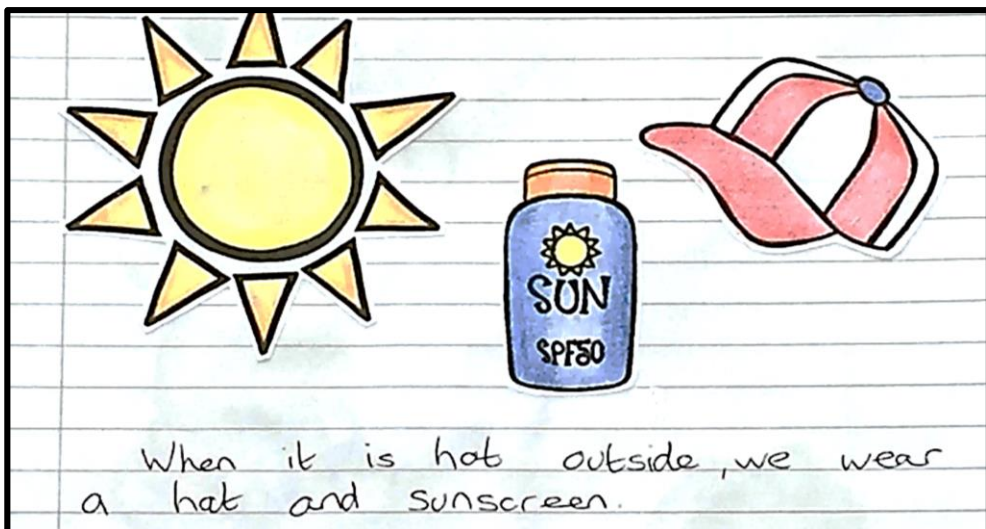 SUN
SPF50
When it is hot outside, we wear
a hat and sunscreen.